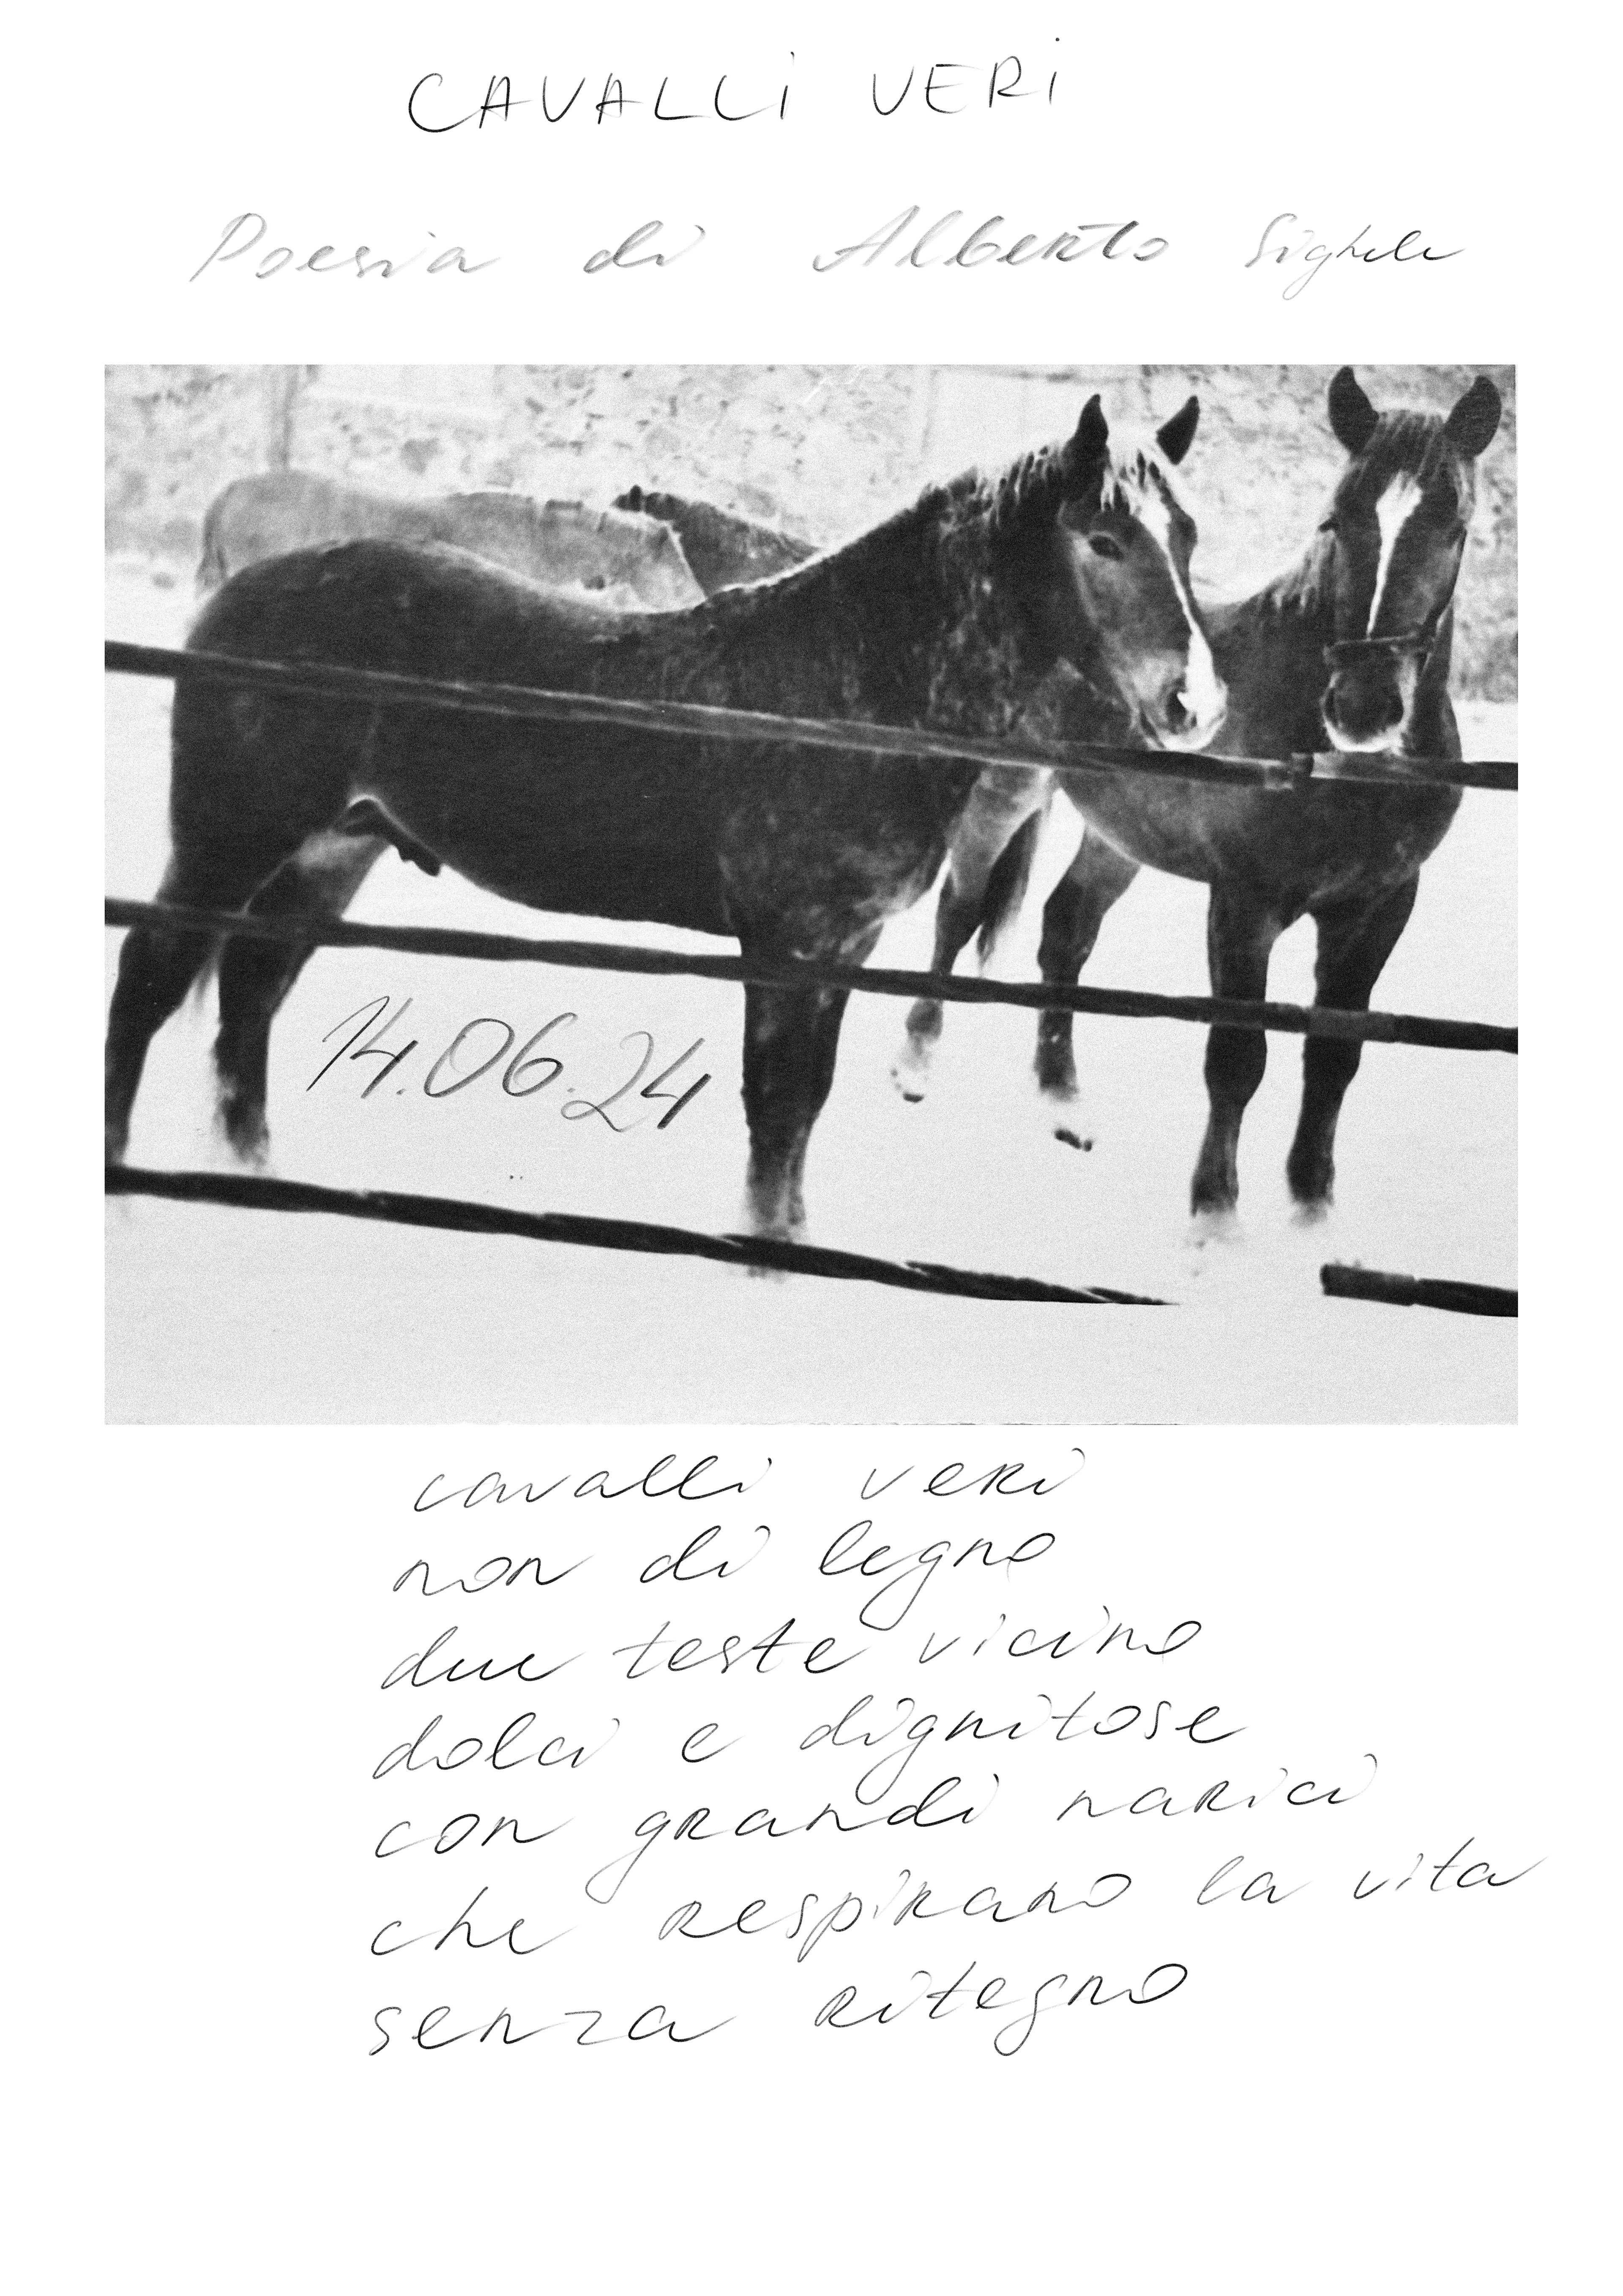 CAVALLi VERi
Poesia di Alberto Sighele
14.06.24
cavalli veri
non di legno
due teste vicino
dolci e dignitose
con grandi narici
che respirano la vita
senza ritegno